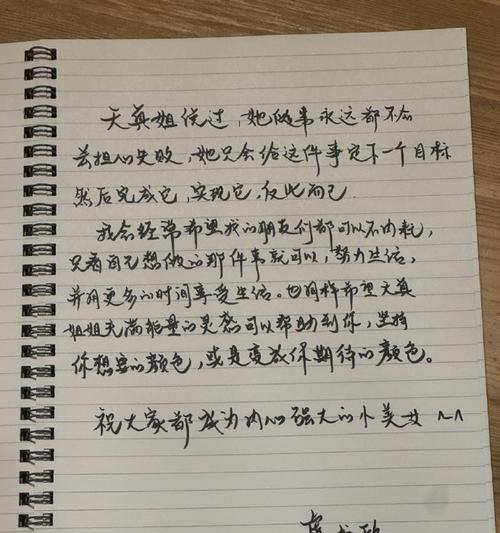 天真姐说过，她做事永远都不会
去担心失败，她只会给这件事定下一个目标
然后完成它，实现它，仅此而已.
我会经常希望我的朋友们都可以不内耗，
只看自己想做的那件事就可以，努力生活，
并用更多的时间享受生活。也同样希望天真
姐姐充满能量的灵感可以帮助到你，坚持
你想要的颜色，或是变成你期待的颜色。
祝大家都成为内心强大的小美女 ^^